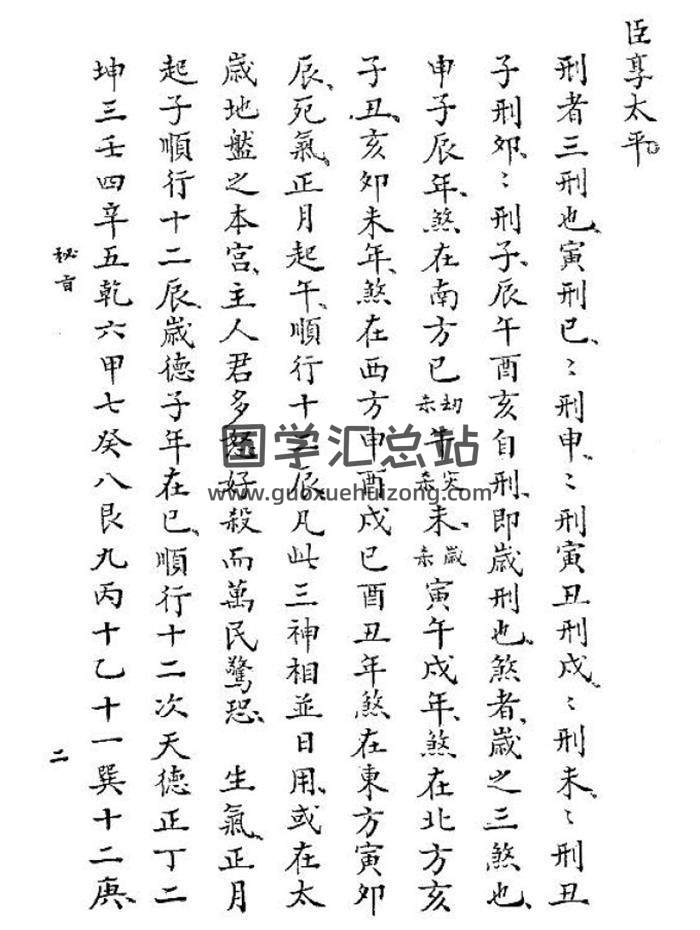 臣享太平。
刑者三刑也、寅刑巳、〻刑申、〻刑寅丑刑戌、〻刑未、〻刑丑
子刑卯、〻刑子、辰午酉亥自刑、即歲刑也、煞者、歲之三煞也、
申子辰年、煞在南方巳劫煞午灾煞未、歲煞寅午戌年、煞在北方亥
子丑、亥卯未年、煞在西方申酉戌巳酉丑年煞在東方寅卯
辰、死氣、正月起午、順行十二辰、凡此三神相並日用、或在太
歲地盤之本宮、主人君多怒好殺而萬民驚恐、生氣、正月
起子順行十二辰、歲德子年在巳、順行十二次天德正丁二
坤三壬四辛五乾六甲七癸八艮九丙十乙十一巽十二庚、
秘旨
二
国学汇总站
www.guoxuehuizong.com